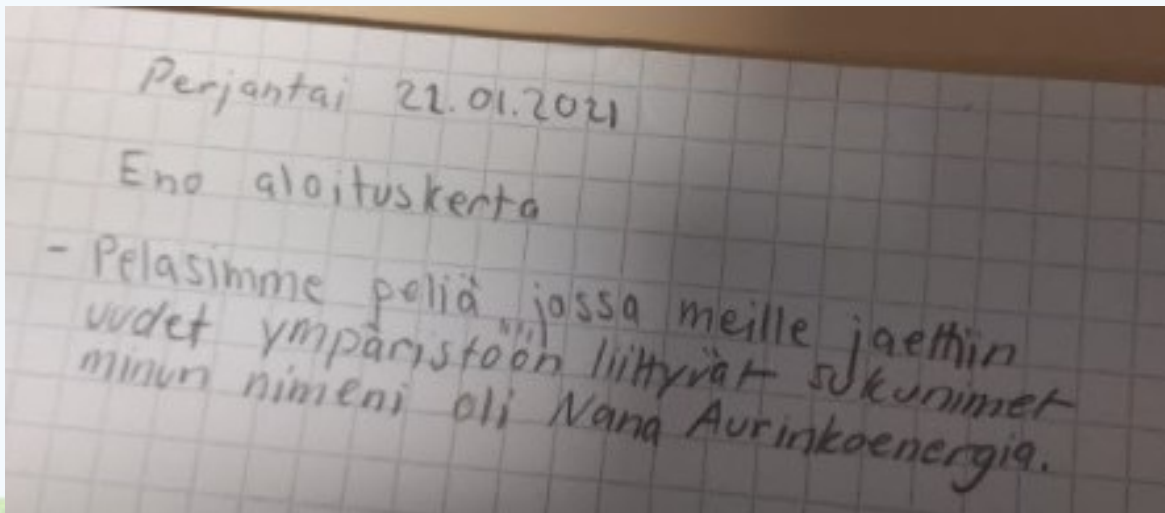 Perjantai 22.01.2021
Eno aloituskerta
- Pelasimme peliä, jossa meille jaettiin
uudet ympäristöön liittyvät sukunimet
minun nimeni oli Nana Aurinkoenergia.